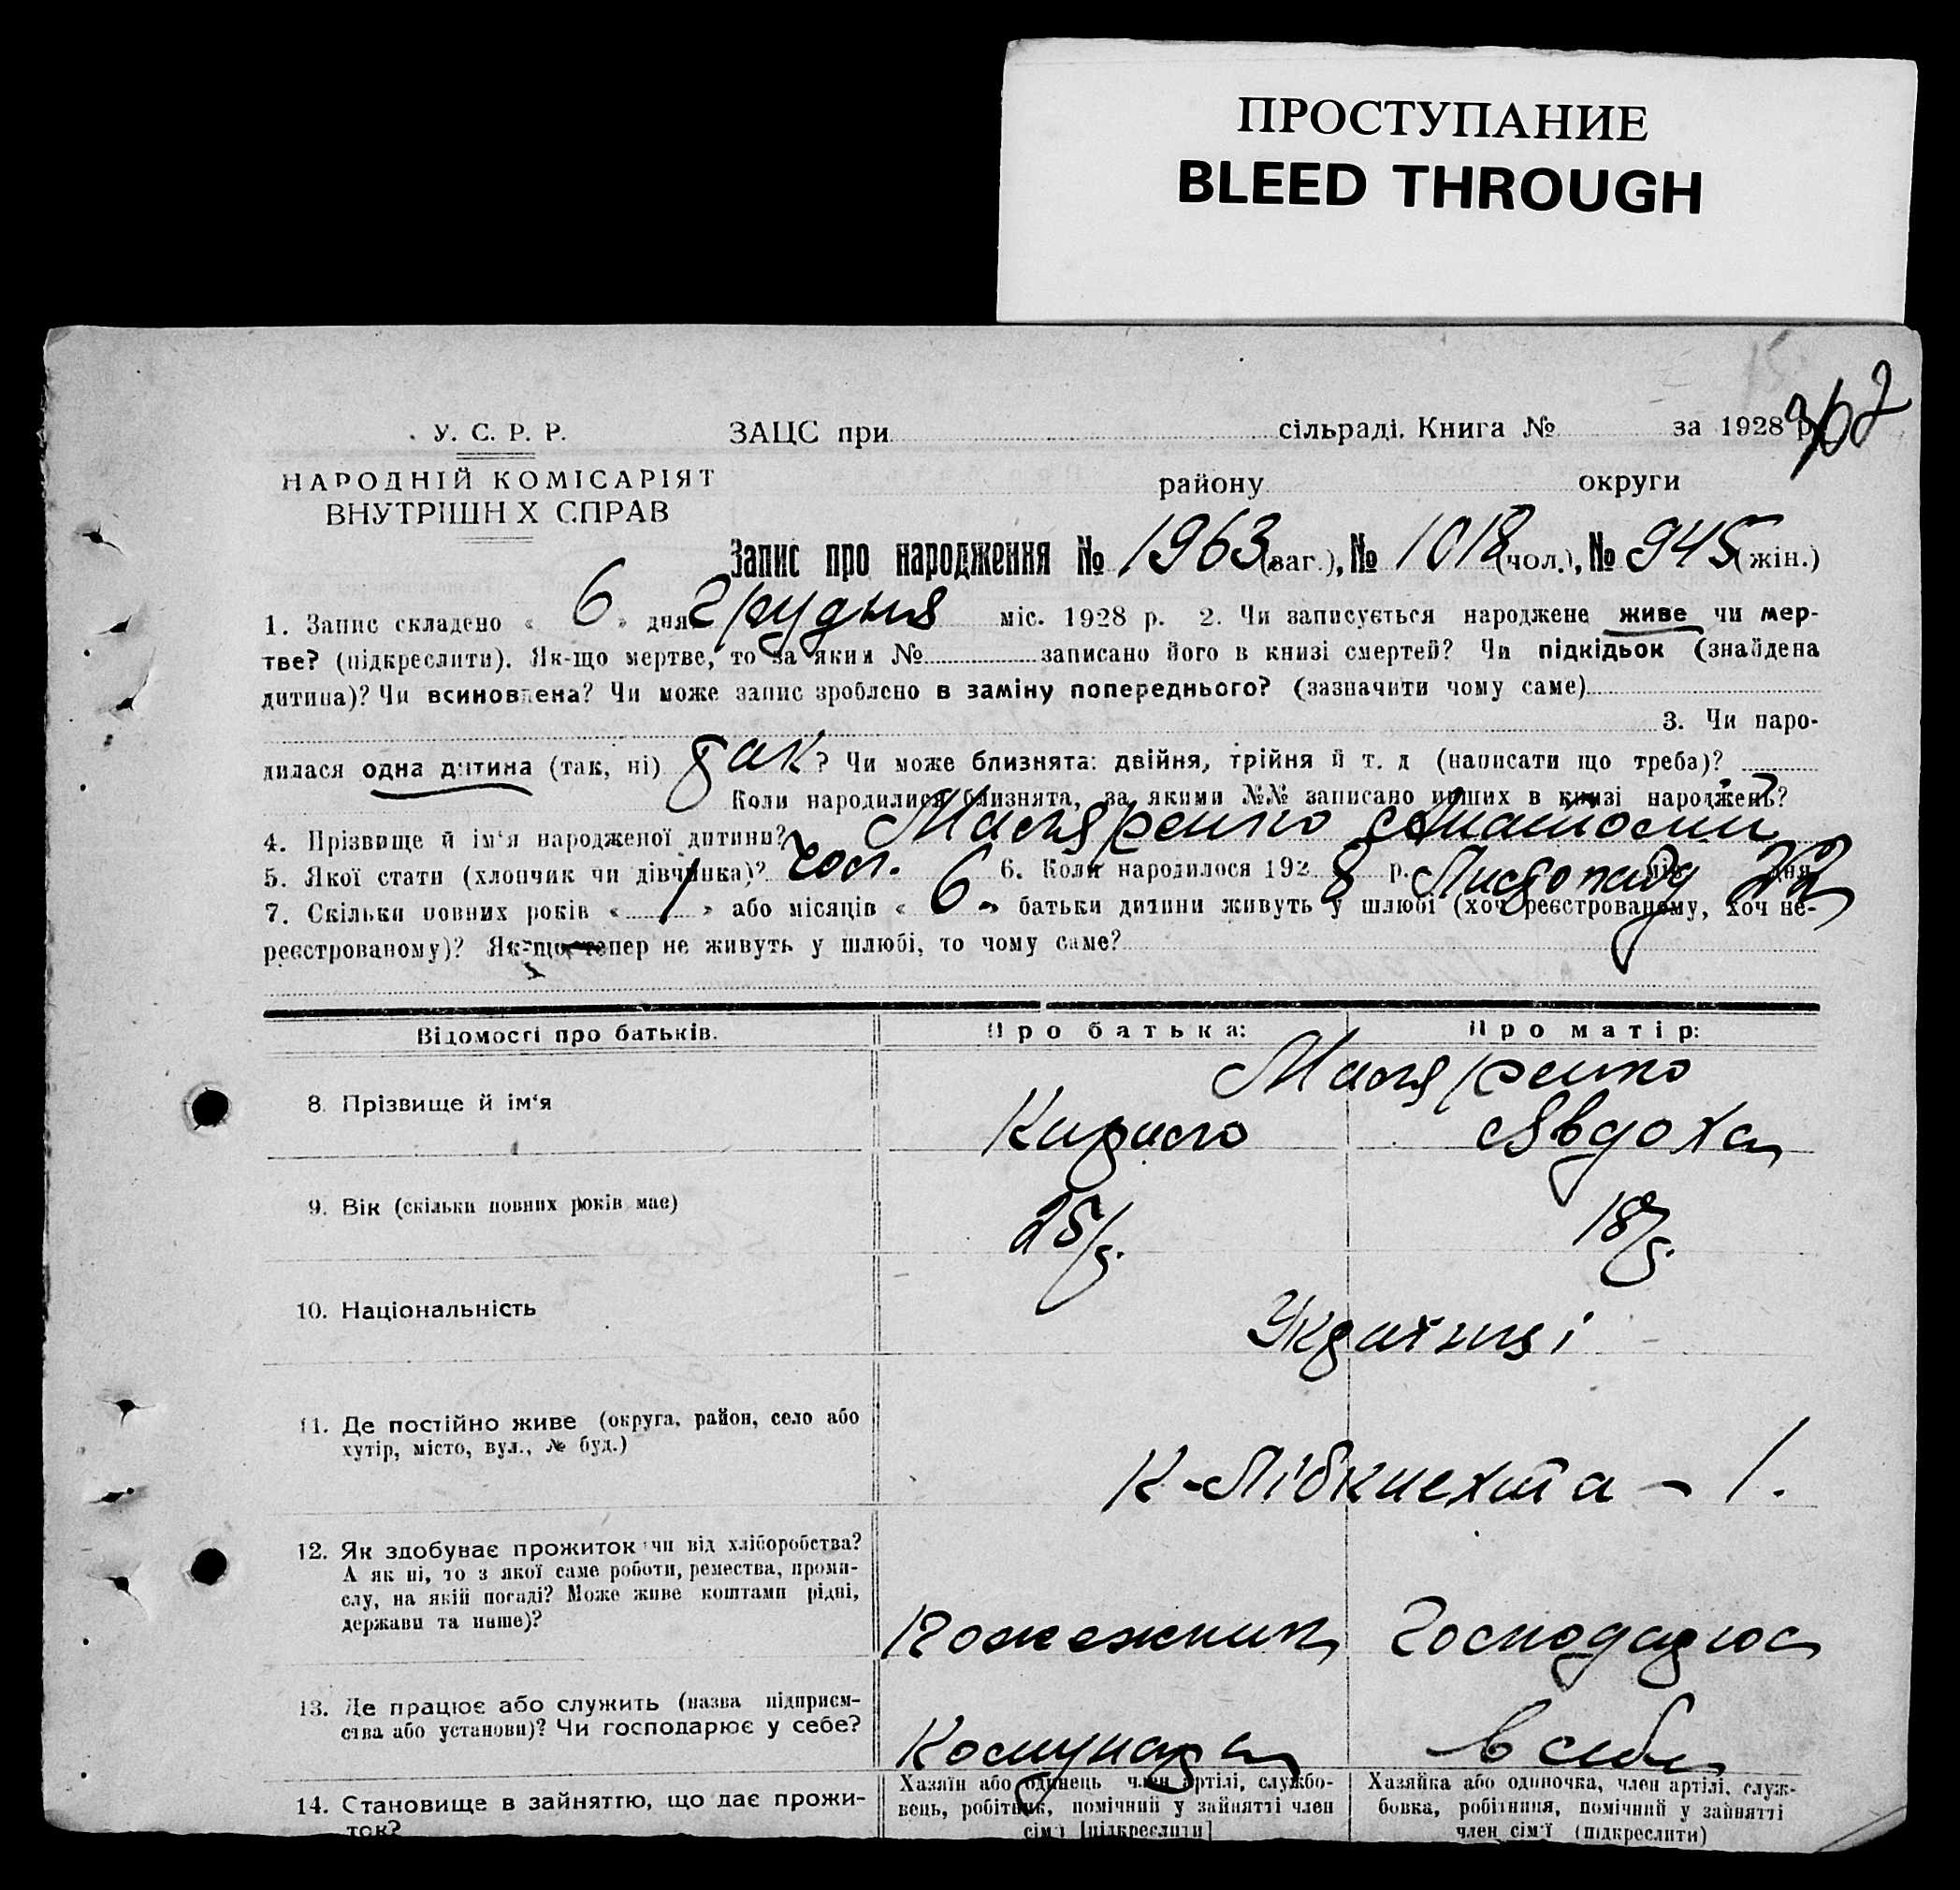 ПРОСТУПАНИЕ
BLEED THROUGH
362
У. С. Р. Р.
ЗАЦС при сільраді. Книга № за 1928 р.
НАРОДНІЙ КОМІСАРІЯТ
району округи
ВНУТРІШН Х СПРАВ
Запис про народження № 1963 (заг.), № 1018 (чол.), № 945 (жін.)
1. Запис складено « 6 » дня Грудня міс. 1928 р. 2. Чи записується народжене живе чи мер-
тве? (підкреслити). Як-що мертве, то за яким № записано його в книзі смертей? Чи підкідьок (знайдена
дитина)? Чи всиновлена? Чи може запис зроблено в заміну попереднього? (зазначити чому саме)
3. Чи наро-
дилася одна дитина (так, ні) так? Чи може близнята: двійня, трійня й т. д (написати що треба)?
Коли народилися близнята, за якими №№ записано инших в книзі народжень?
4. Прізвище й ім'я народженої дитини? Маляренко Анатолій
5. Якої стати (хлопчик чи дівчинка)? чол. 6. Коли народилося 1928 р. Листопад міс. 22 дня
7. Скільки повних років « 1 » або місяців « 6 » батьки дитини живуть у шлюбі (хоч реєстрованому, хоч не-
реєстрованому)? Як-що тепер не живуть у шлюбі, то чому саме?
Відомості про батьків. Про батька: Про матір:
Маляренко
8. Прізвище й ім'я Кирило Явдоха
9. Вік (скільки повних років має) 25 р. 18 р.
10. Національність Українці
11. Де постійно живе (округа, район, село або
хутір, місто, вул., № буд.)
К-Лібкнехта - 1.
12. Як здобуває прожиток чи від хліборобства?
А як ні, то з якої саме роботи, ремества, проми-
слу, на якій посаді? Може живе коштами рідні,
держави та инше)?
Пожежник Господарює
13. Де працює або служить (назва підприєм-
ства або установи)? Чи господарює у себе?
в себе
Хазяїн або одинець член артілі, службо- Хазяйка або одиночка, член артілі, служ-
14. Становище в зайняттю, що дає прожи- вець, робітник, помічний у зайнятті член бовка, робітниця, помічний у зайнятті
ток? сім'ї [підкреслити] член сім'ї (підкреслити)